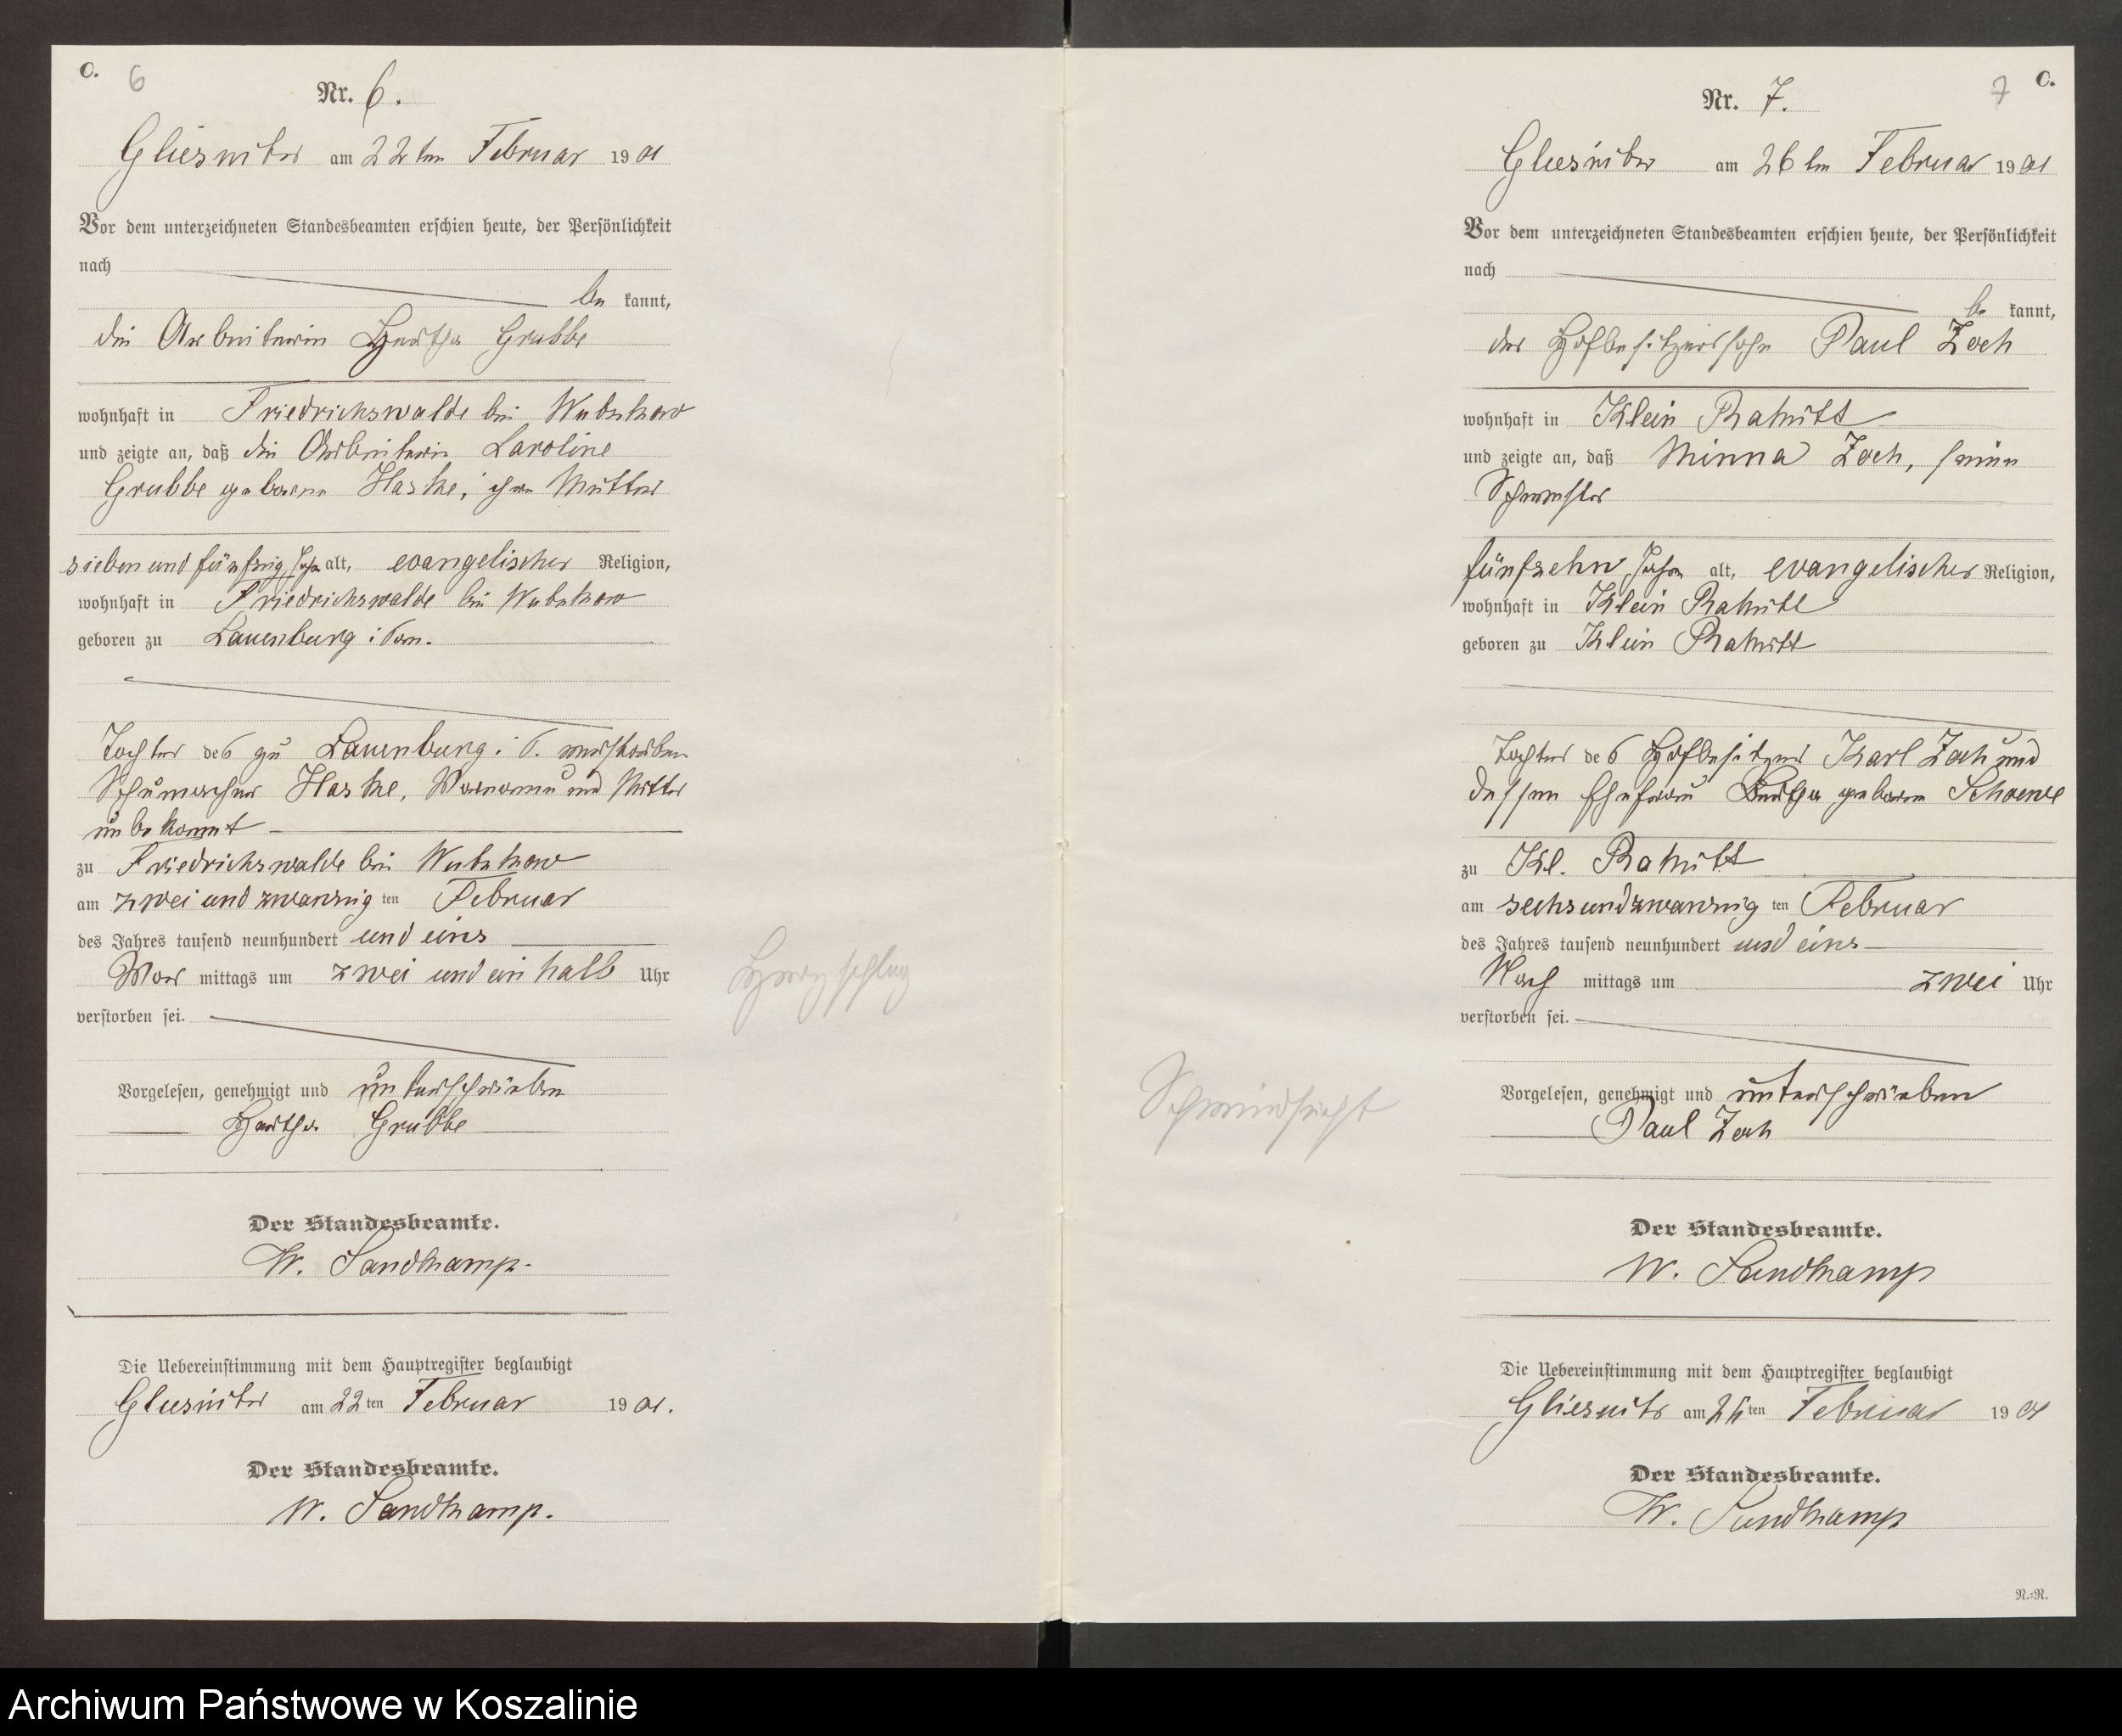 C.
6
Nr. 6.
Gliesnitz am 22ten Februar 1901
Vor dem unterzeichneten Standesbeamten erschien heute, der Persönlichkeit
nach
be kannt,
die Arbeiterin Hertha Grubbe
wohnhaft in Friedrichswalde bei
und zeigte an, daß die Arbeiterin Caroline
Grubbe geborene Haske, ihre Mutter
sieben und fünfzig Jahre alt, evangelischer Religion,
wohnhaft in Friedrichswalde bei
geboren zu Lauenburg i Pom.
Tochter des zu Lauenburg i. P. verstorbenen
Schumacher Haske, Vorname und Mutter
unbekannt
zu Friedrichswalde bei
am zwei und zwanzig ten Februar
des Jahres tausend neunhundert und eins
Vor mittags um zwei und ein halb Uhr
verstorben sei.
Herzschlag
Vorgelesen, genehmigt und unterschrieben
Hertha Grubbe
Der Standesbeamte.
W. Sandkamp.
Die Uebereinstimmung mit dem Hauptregister beglaubigt
am 22ten Februar 1901.
Der Standesbeamte.
W. Sandkamp.
C.
7
Nr. 7.
am 26ten Februar 1901
Vor dem unterzeichneten Standesbeamten erschien heute, der Persönlichkeit
nach
be kannt,
der Hofbesitzerssohn Paul Zoch
wohnhaft in Klein Rakitt
und zeigte an, daß Minna Zoch, seine
Schwester
fünfzehn Jahre alt, evangelischer Religion,
wohnhaft in Klein Rakitt
geboren zu Klein Rakitt
Tochter des Hofbesitzers Karl Zoch und
dessen Ehefrau Bertha geborene
zu Kl. Rakitt
am sechsundzwanzig ten Februar
des Jahres tausend neunhundert und eins
Nach mittags um zwei Uhr
verstorben sei.
Schwindsucht
Vorgelesen, genehmigt und unterschrieben
Paul Zoch
Der Standesbeamte.
W. Sandkamp
Die Uebereinstimmung mit dem Hauptregister beglaubigt
am 26ten Februar 1901
Der Standesbeamte.
W. Sandkamp
R.-R.
Archiwum Państwowe w Koszalinie